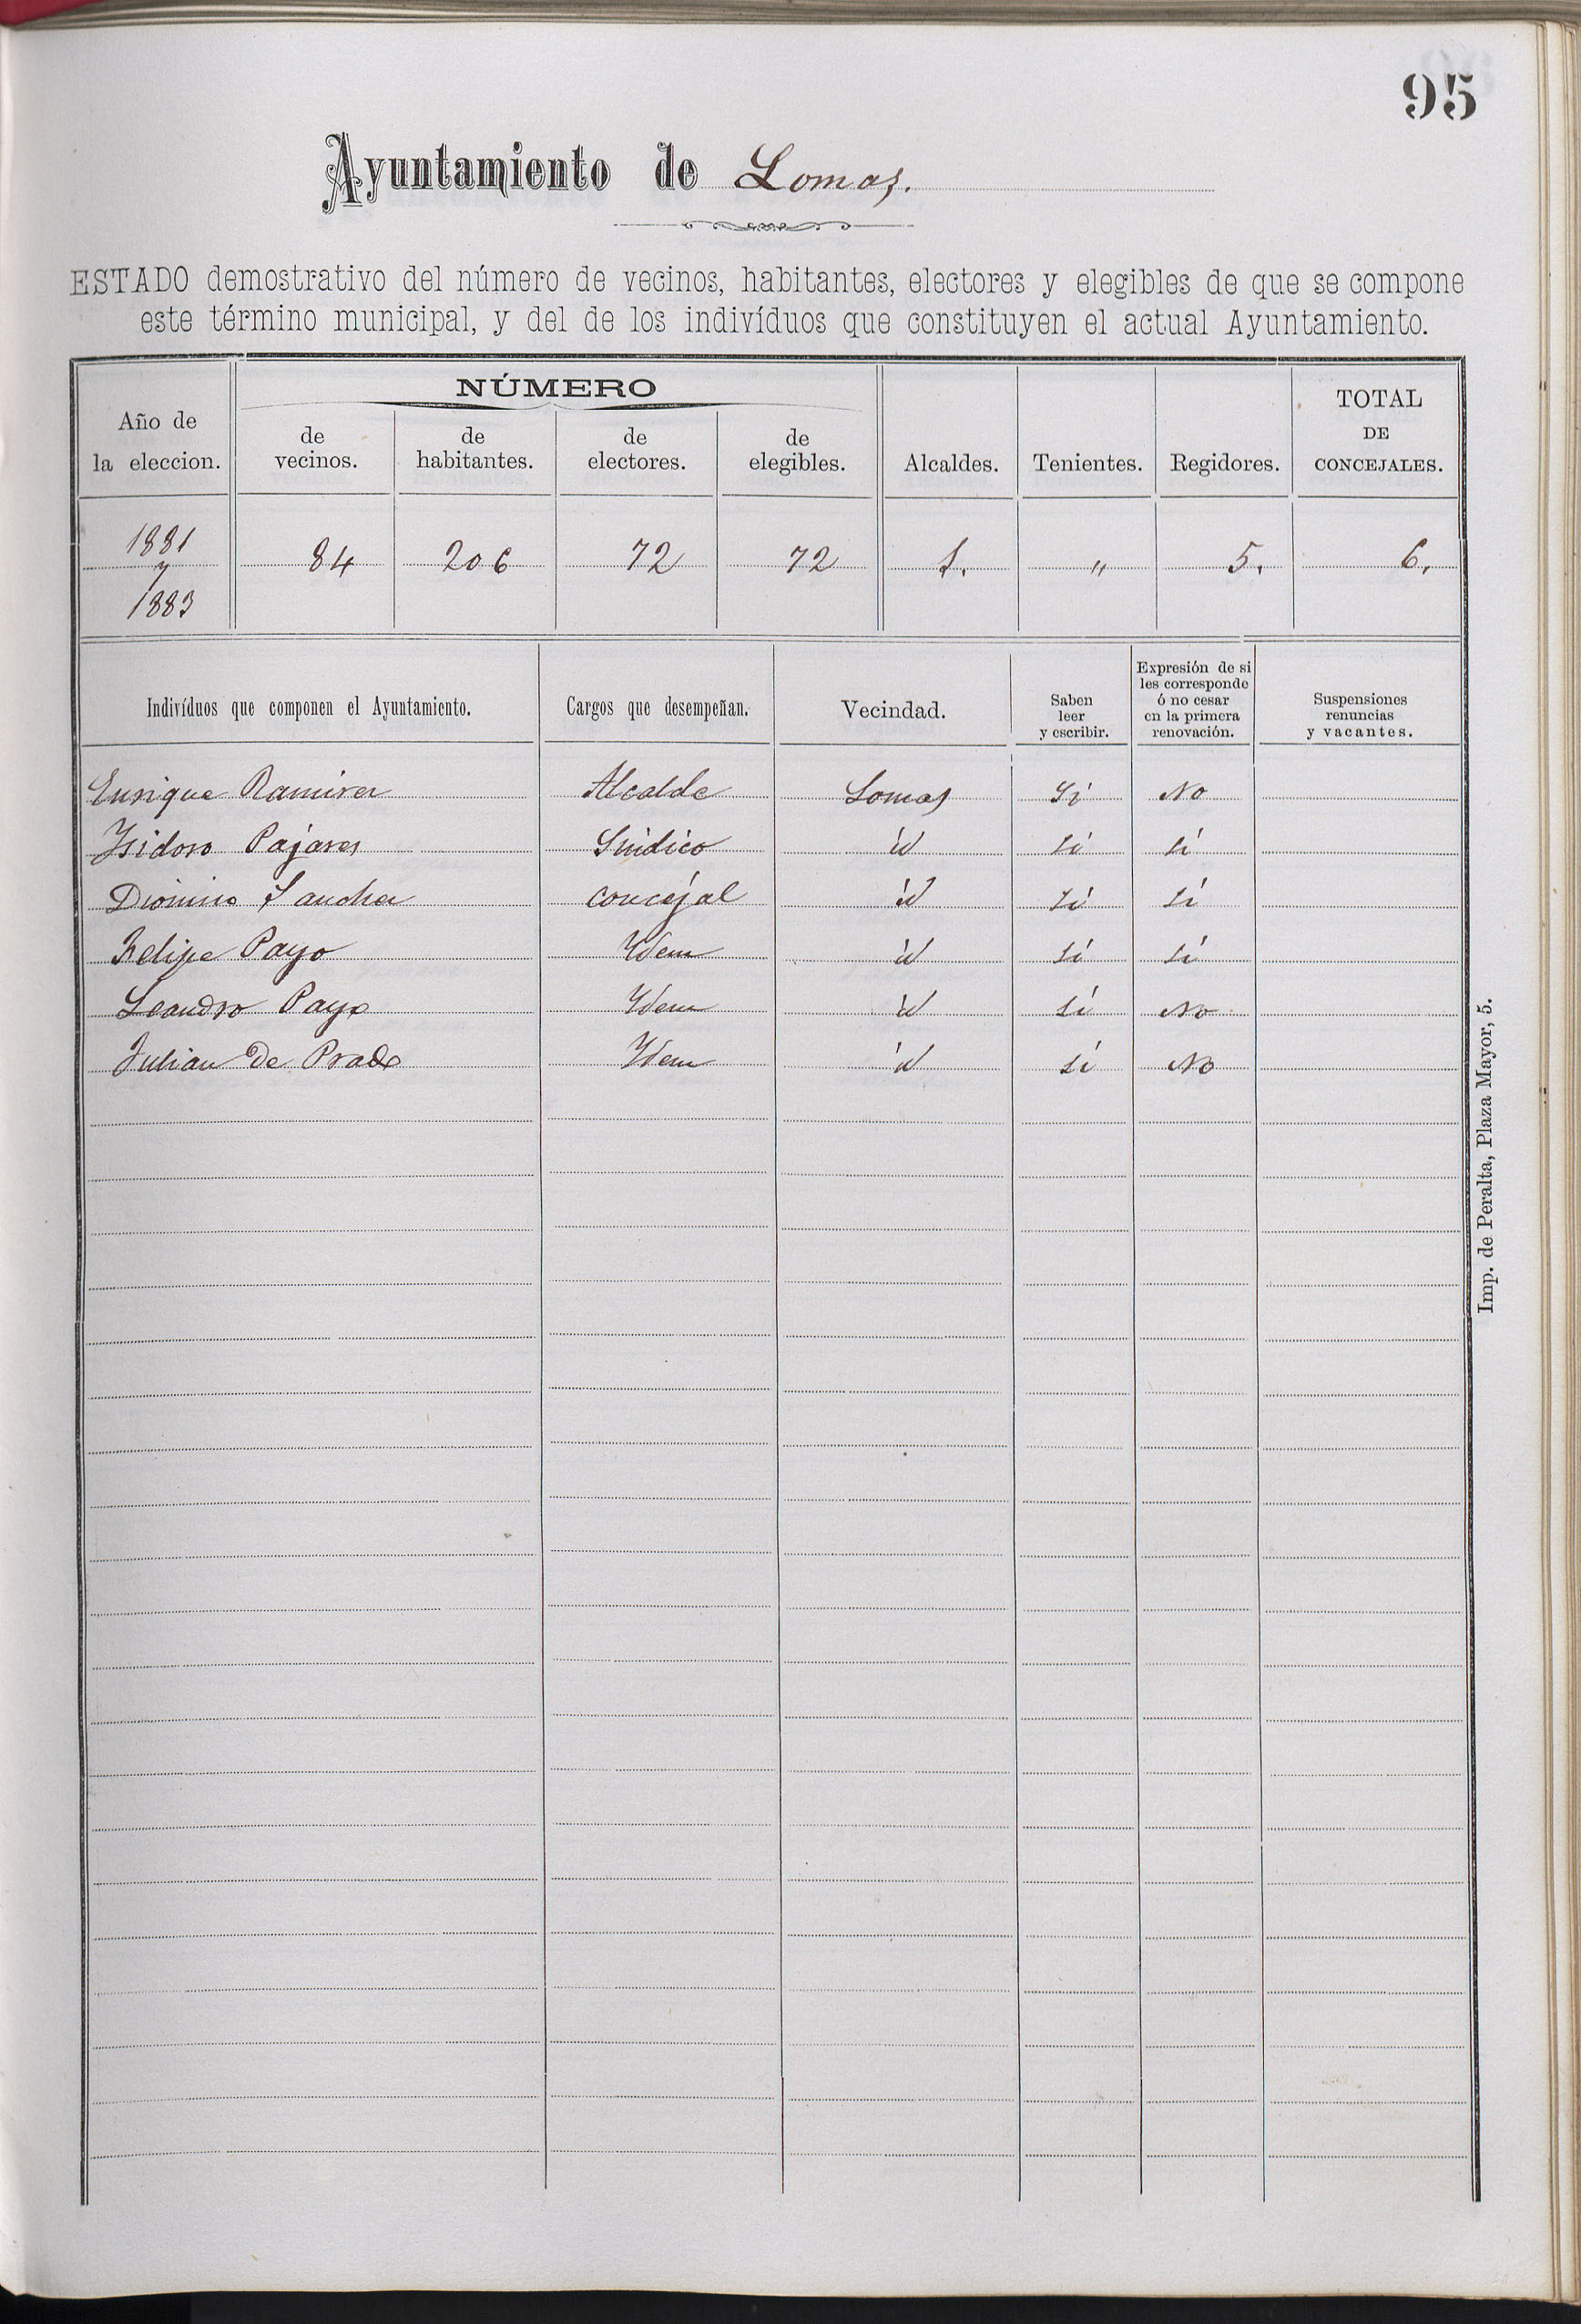 95
Ayuntamiento de Lomas.
ESTADO demostrativo del número de vecinos, habitantes, electores y elegibles de que se compone
este término municipal, y del de los indivíduos que constituyen el actual Ayuntamiento.
Año de la eleccion. NÚMERO de vecinos. de habitantes. de electores. de elegibles. Alcaldes. Tenientes. Regidores. TOTAL DE CONCEJALES.
1881 y 1883 84 206 72 72 1. " 5. 6.
Indivíduos que componen el Ayuntamiento. Cargos que desempeñan. Vecindad. Saben leer y escribir. Expresión de si les corresponde ó no cesar en la primera renovación. Suspensiones renuncias y vacantes.
Enrique Ramirez Alcalde Lomas Si No
Isidoro Pajares Sindico id si si
Dionisio Sanchez concejal id si si
Felipe Payo Idem id si si
Leandro Payo Idem id si No
Julian De Prado Idem id si No
Imp. de Peralta, Plaza Mayor, 5.